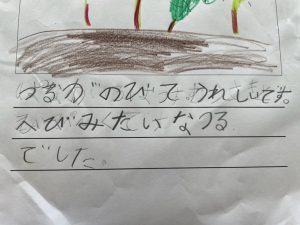 つるがのびて。うれしいです。
へびみたいなつる
でした。